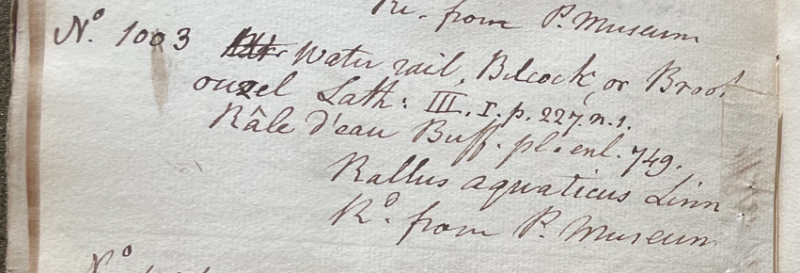 Rº. from P. Museum
Nº 1003 Water rail, Bilcock, or Brook
ouzel Lath: III. I. p. 227. n. 1.
Râle d'eau Buff. pl. enl. 749.
Rallus aquaticus Linn
Rº. from P. Museum
Nº